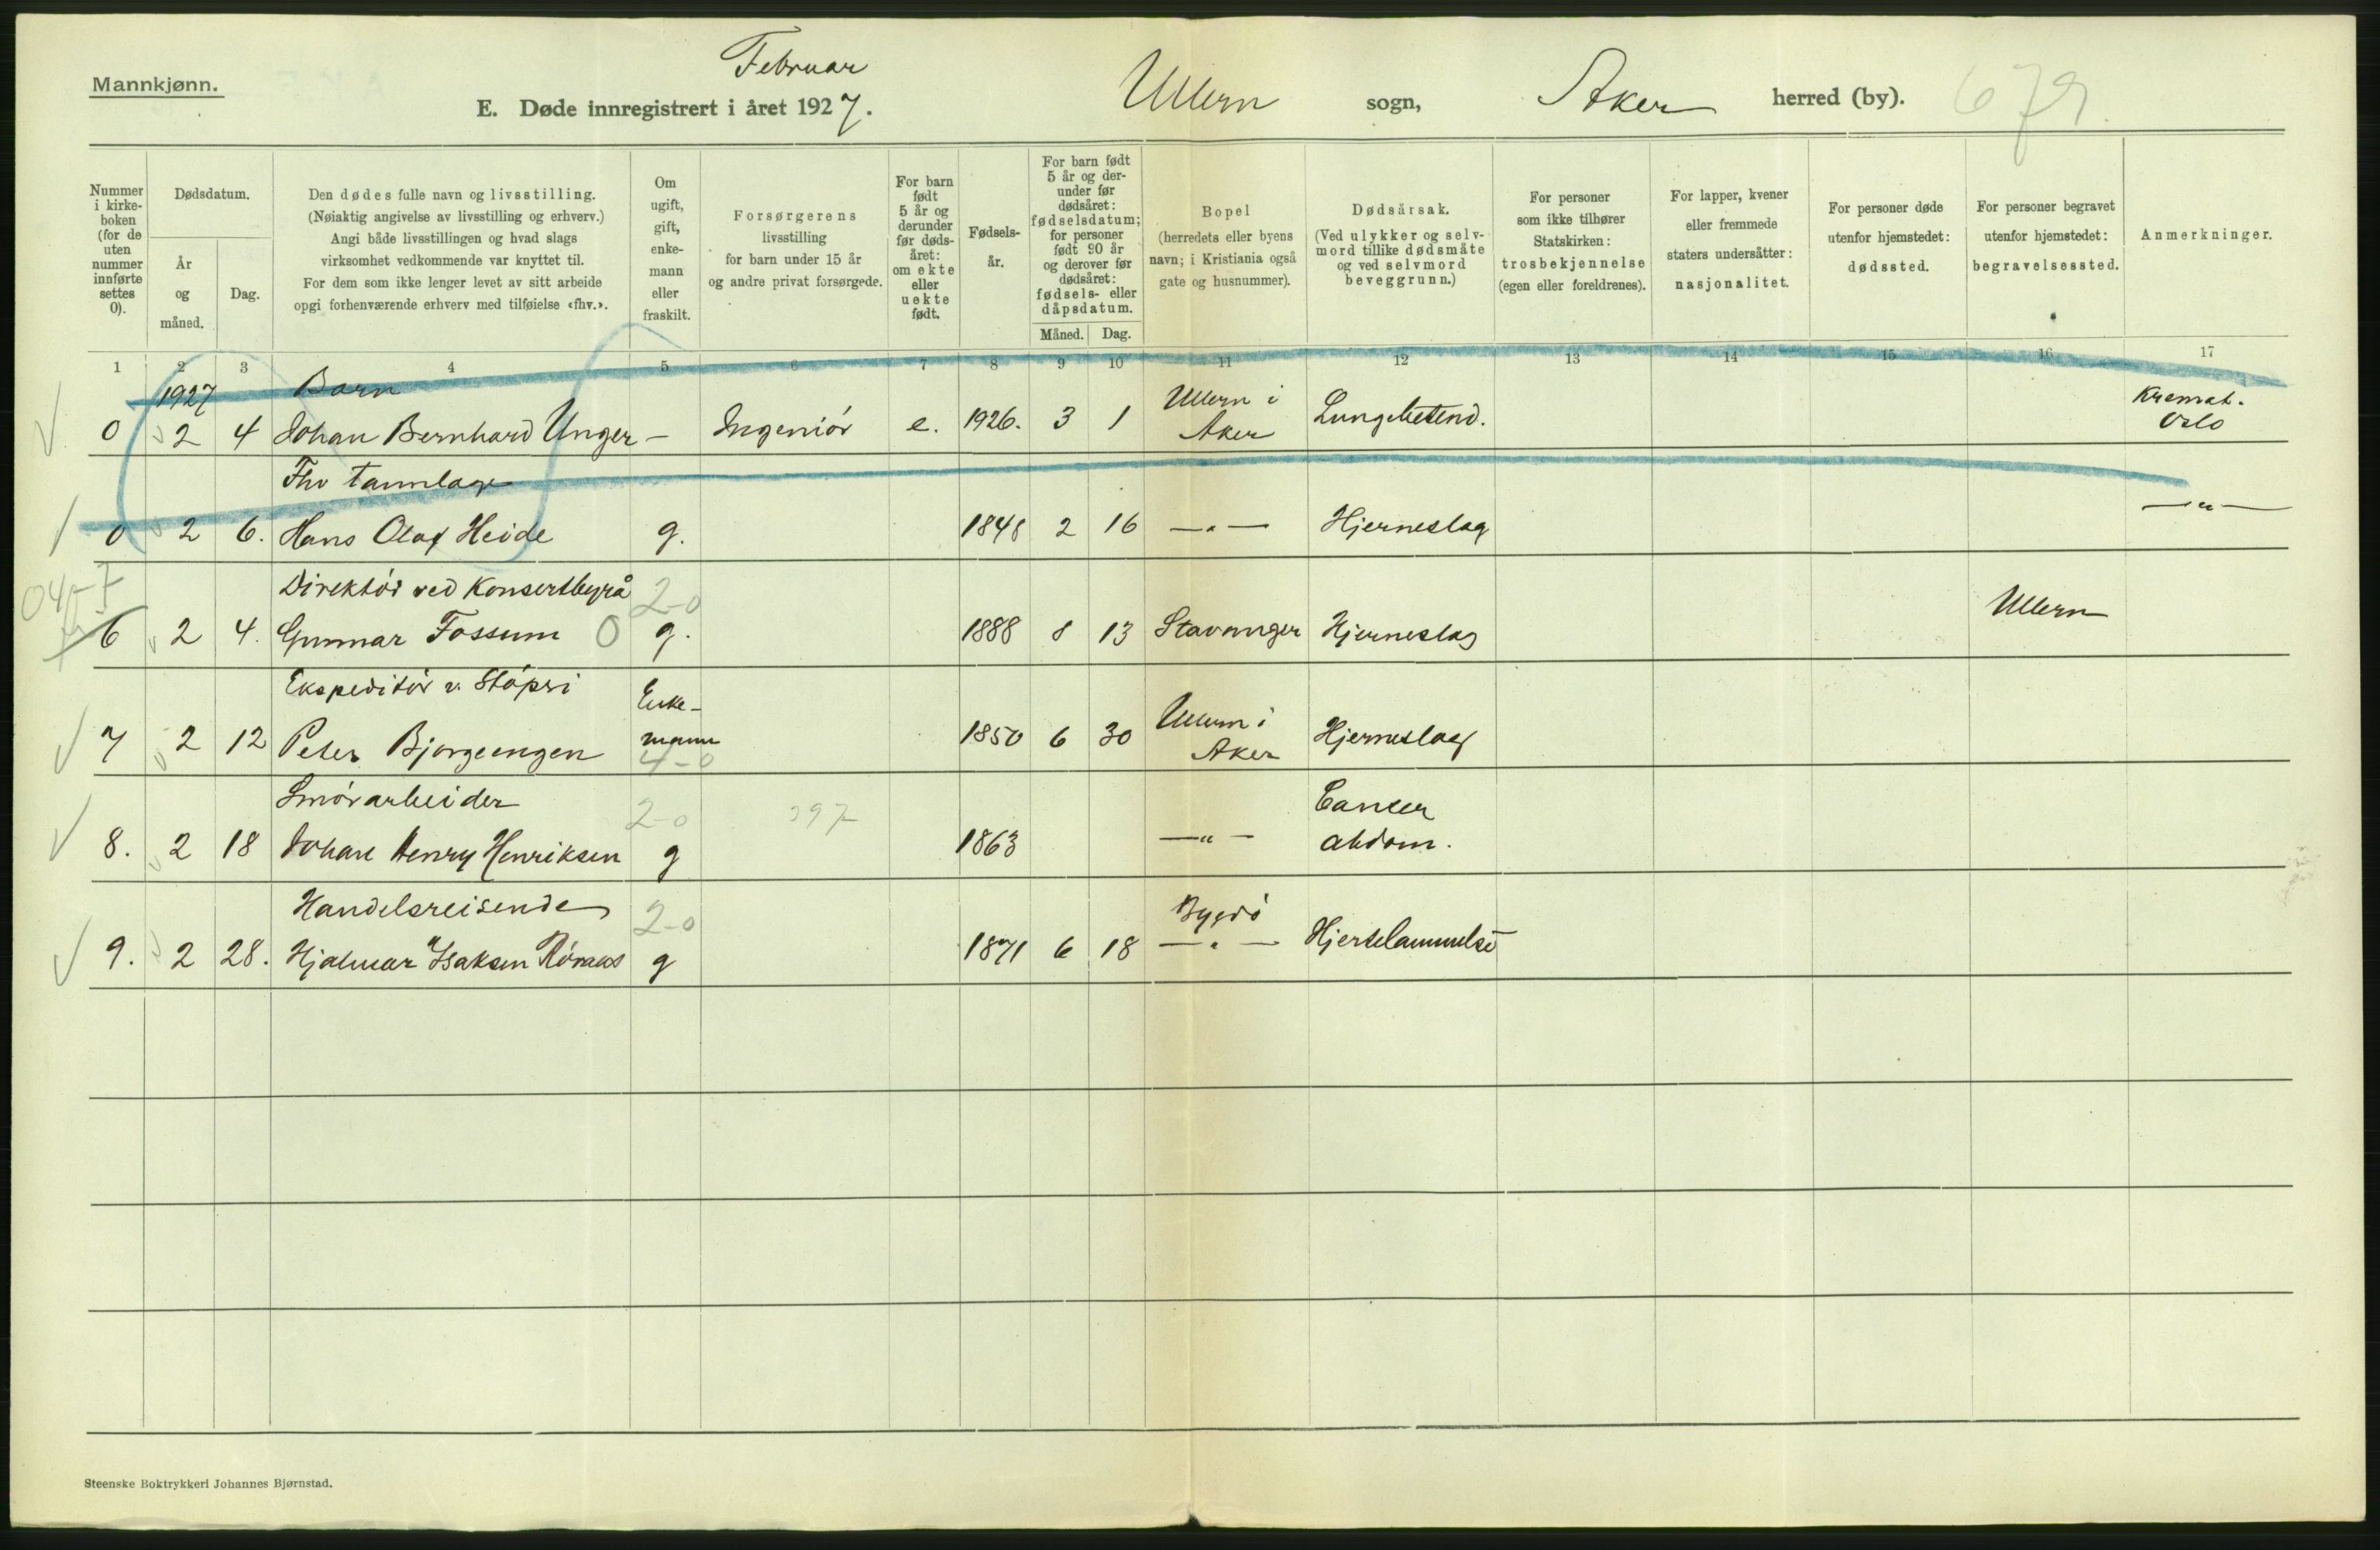 Februar
Mannkjønn.
E. Døde innregistrert i året 1927. Ullern sogn, Aker herred (by). 679.
Nummer
i kirke-
boken
(for de
uten
nummer
innførte
settes
0).
Dødsdatum.
År
og
måned.
Dag.
Den dødes fulle navn og livsstilling.
(Nøiaktig angivelse av livsstilling og erhverv.)
Angi både livsstillingen og hvad slags
virksomhet vedkommende var knyttet til.
For dem som ikke lenger levet av sitt arbeide
opgi forhenværende erhverv med tilføielse «fhv.».
Om
ugift,
gift,
enke-
mann
eller
fraskilt.
Forsørgerens
livsstilling
for barn under 15 år
og andre privat forsørgede.
For barn
født
5 år og
derunder
før døds-
året:
om ekte
eller
uekte
født.
Fødsels-
år.
For barn født
5 år og der-
under før
dødsåret:
fødselsdatum;
for personer
født 90 år
og derover før
dødsåret:
fødsels- eller
dåpsdatum.
Måned. Dag.
Bopel
(herredets eller byens
navn; i Kristiania også
gate og husnummer).
Dødsårsak.
(Ved ulykker og selv-
mord tillike dødsmåte
og ved selvmord
beveggrunn.)
For personer
som ikke tilhører
Statskirken:
trosbekjennelse
(egen eller foreldrenes).
For lapper, kvener
eller fremmede
staters undersåtter:
nasjonalitet.
For personer døde
utenfor hjemstedet:
dødssted.
For personer begravet
utenfor hjemstedet:
begravelsessted.
Anmerkninger.
1 2 3 4 5 6 7 8 9 10 11 12 13 14 15 16 17
1927 Barn Ullern i Kremat.
0 2 4 Johan Bernhard Unger - Ingeniör e. 1926. 3 1 Aker Lungebetend. Oslo
Fhv tannlæge
0 2 6. Hans Olaf Heide g. 1848 2 16 —"— Hjerneslag —"—
Direktör ved Konsertbyrå 2-0 Ullern
6 2 4. Gunnar Fossum 0 g. 1888 8 13 Stavanger Hjerneslag
Ekspeditör v. Stöperi Enke- Ullern i
7 2 12 Peter Bjørgeengen mann 1850 6 30 Aker Hjerneslag
4-0
Smörarbeider 2-0 397 Cancer
8. 2 18 Johan Henry Henriksen g 1863 —"— abdom.
Handelsreisende 2-0 Bygdö
9. 2 28. Hjalmar Isaksen Röraas g 1871 6 18 —"— Hjertelammelse
Steenske Boktrykkeri Johannes Bjørnstad.